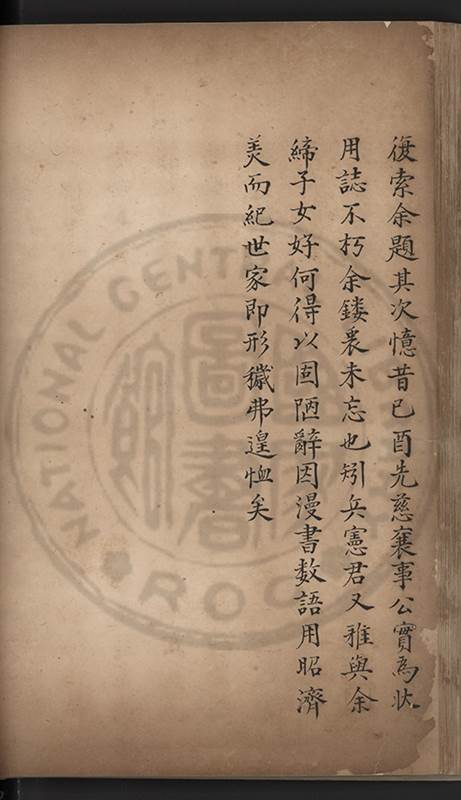 復索余題其次憶昔己酉先慈襄事公實為狀
用誌不朽余鏤衷未忘也矧兵憲君又雅與余
締子女好何得以固陋辭因漫書数語用昭濟
美而紀世家即形穢弗遑恤矣
NATIONAL CENT
ROC